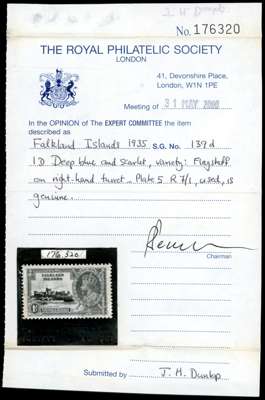 No. 176320
THE ROYAL PHILATELIC SOCIETY
LONDON
41, Devonshire Place,
London, W1N 1PE
Meeting of 31 MAY 2000
In the OPINION of The EXPERT COMMITTEE the item
described as
Falkland Islands 1935 S.G. No. 139d
1D Deep blue and scarlet, variety: Flagstaff
on right-hand turret - Plate 5 R 7/1, used, is
genuine.
176,320
FALKLAND
ISLANDS
Chairman
Submitted by J. H. Dunlop